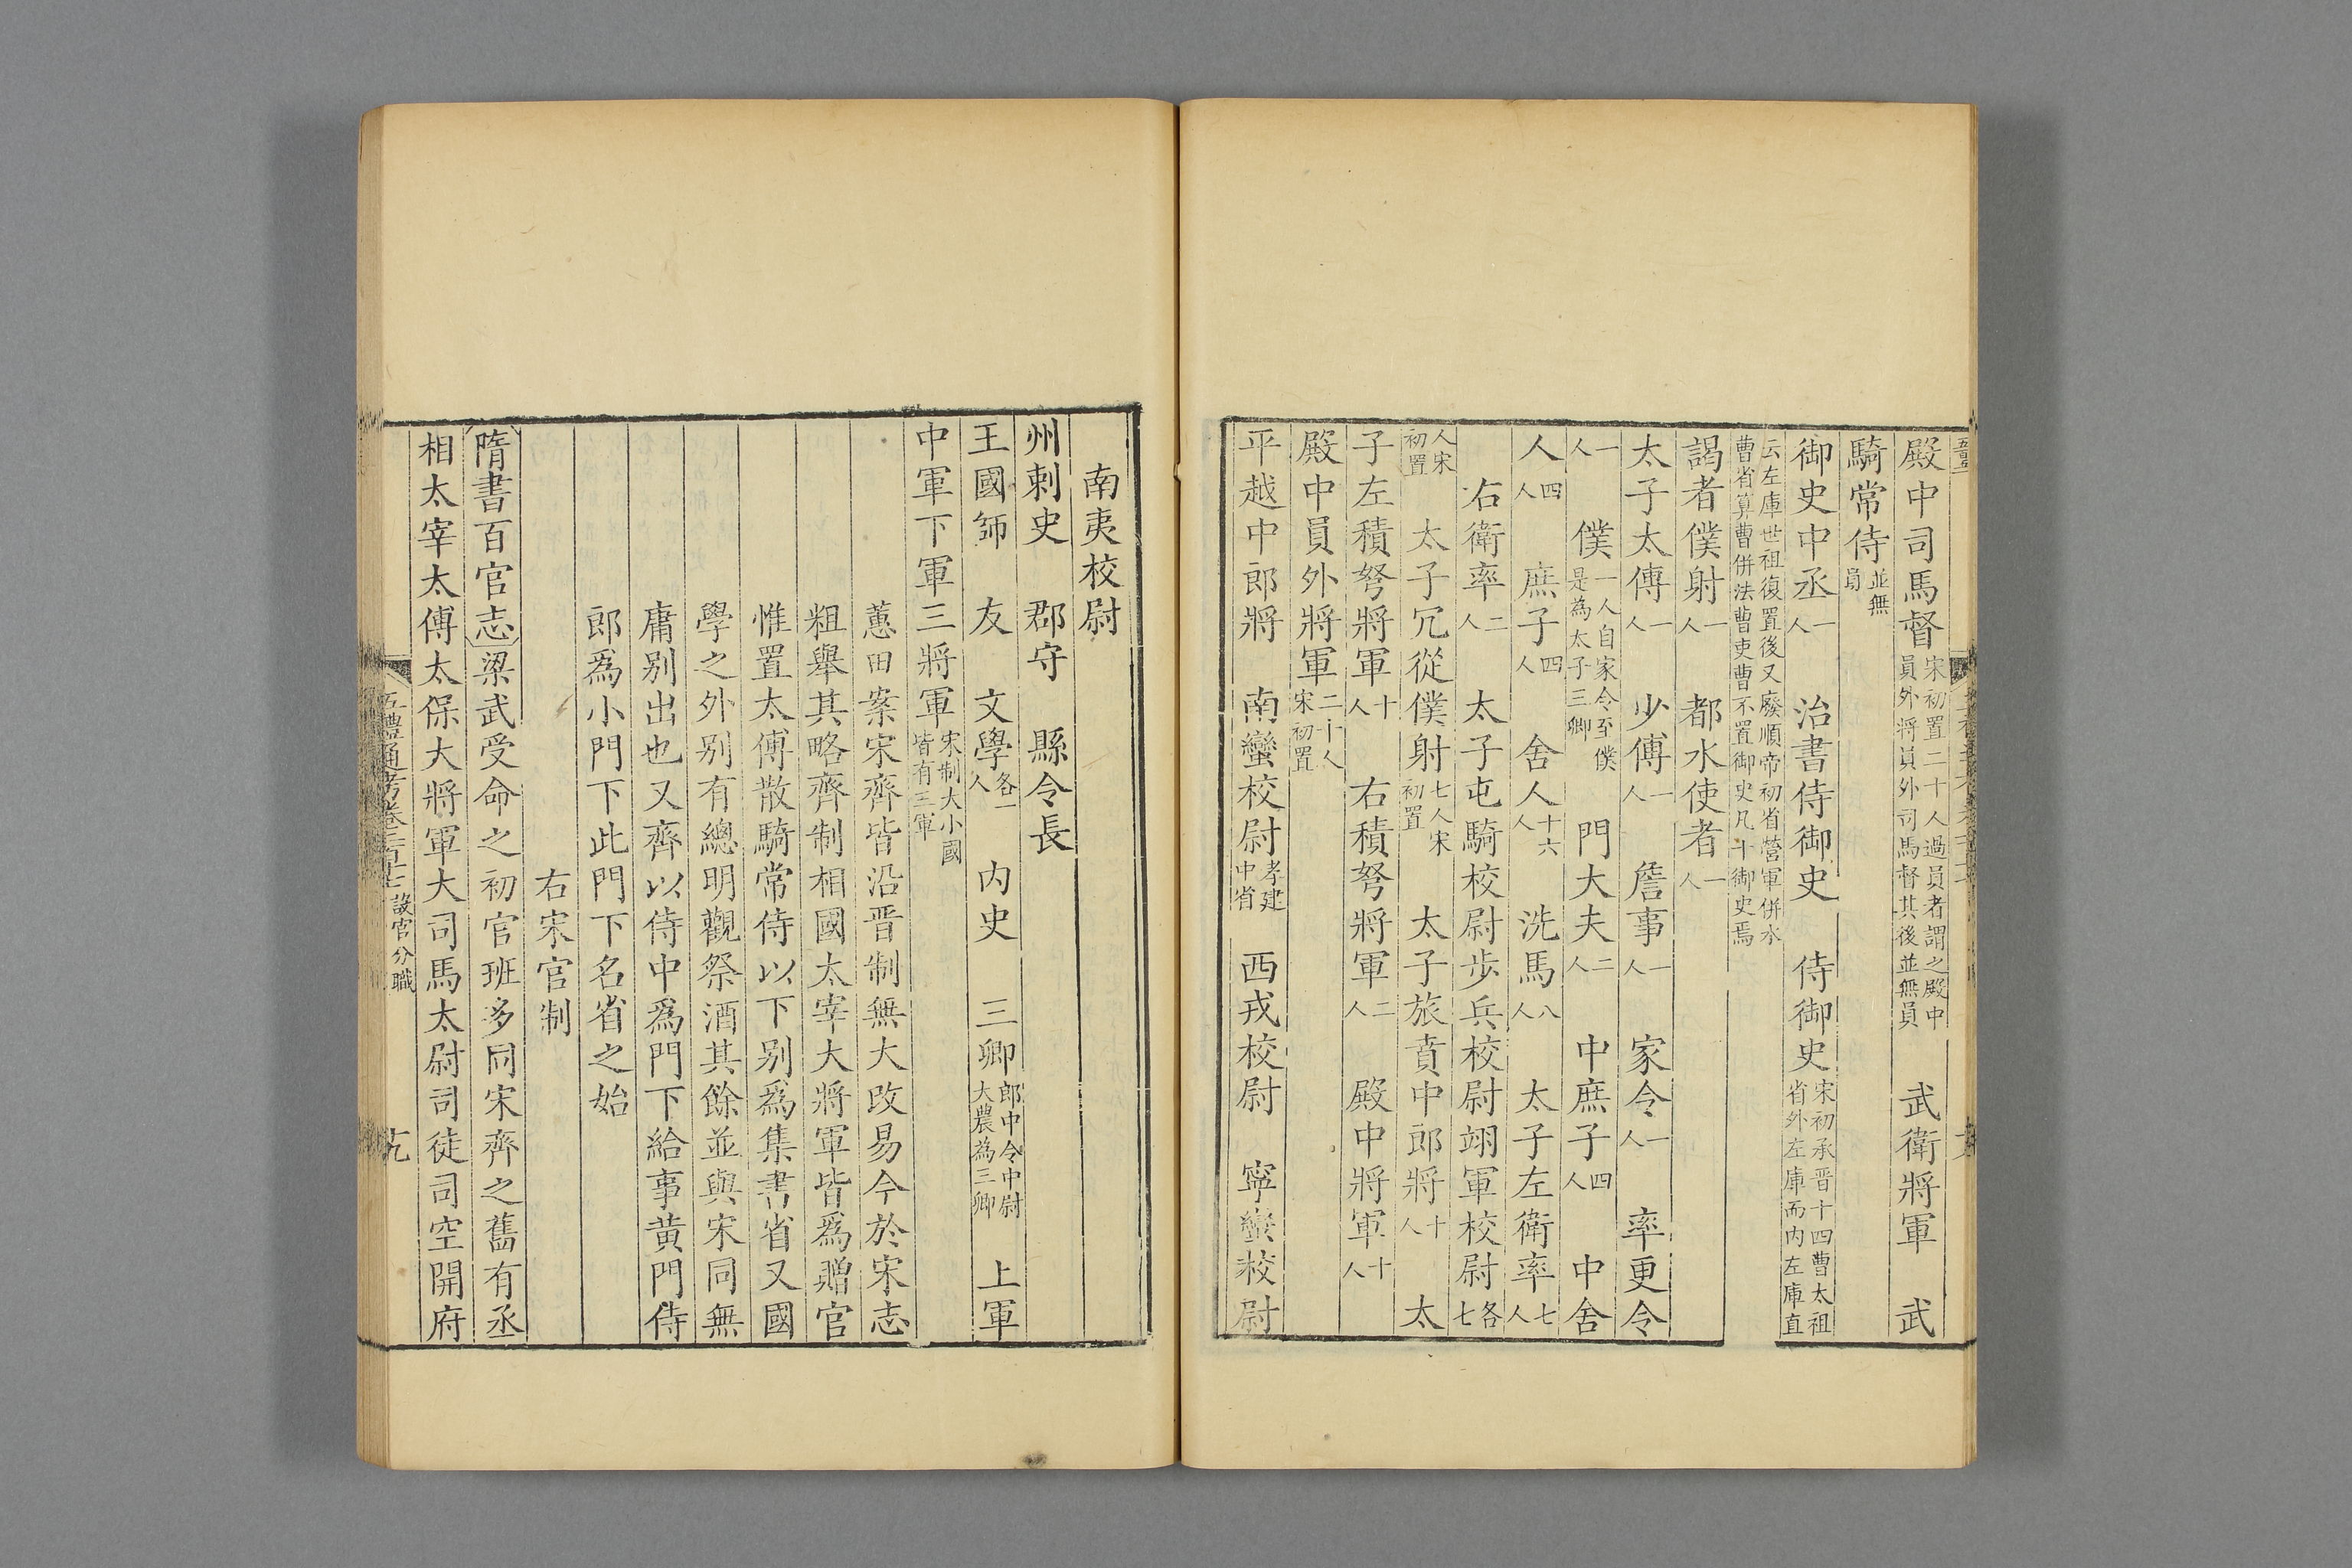 殿中司馬督宋初置二十人過員者謂之殿中員外將員外司馬督其後並無員　武衛將軍　武
騎常侍並無員
御史中丞一人　治書侍御史　侍御史宋初承晉十四曹太祖省外左庫而內左庫直
云左庫世祖復置後又廢順帝初省營軍併水曹省算曹併法曹吏曹不置御史凡十御史焉
謁者僕射一人　都水使者一人
太子太傅一人　少傅一人　詹事一人　家令一人　率更令
一人　僕一人自家令至僕是為太子三卿　門大夫二人　中庶子四人　中舍
人四人　庶子四人　舍人十六人　洗馬八人　太子左衛率七人
右衛率二人　太子屯騎校尉步兵校尉翊軍校尉各七
人宋初置　太子冗從僕射七人宋初置　太子旅賁中郎將十人　太
子左積弩將軍十人　右積弩將軍二人　殿中將軍十人
殿中員外將軍二十人宋初置
平越中郎將　南蠻校尉孝建中省　西戎校尉　寧蠻校尉
南夷校尉
州刺史　郡守　縣令長
王國師　友　文學各一人　內史　三卿郎中令中尉大農為三卿　上軍
中軍下軍三將軍宋制大小國皆有三軍
蕙田案宋齊皆沿晉制無大改易今於宋志
粗舉其略齊制相國太宰大將軍皆爲贈官
惟置太傅散騎常侍以下别爲集書省又國
學之外别有總明觀祭酒其餘並與宋同無
庸别出也又齊以侍中爲門下給事黃門侍
郎爲小門下此門下名省之始
右宋官制
隋書百官志梁武受命之初官班多同宋齊之舊有丞
相太宰太傅太保大將軍大司馬太尉司徒司空開府
五禮通考卷二百十七　設官分職　十九